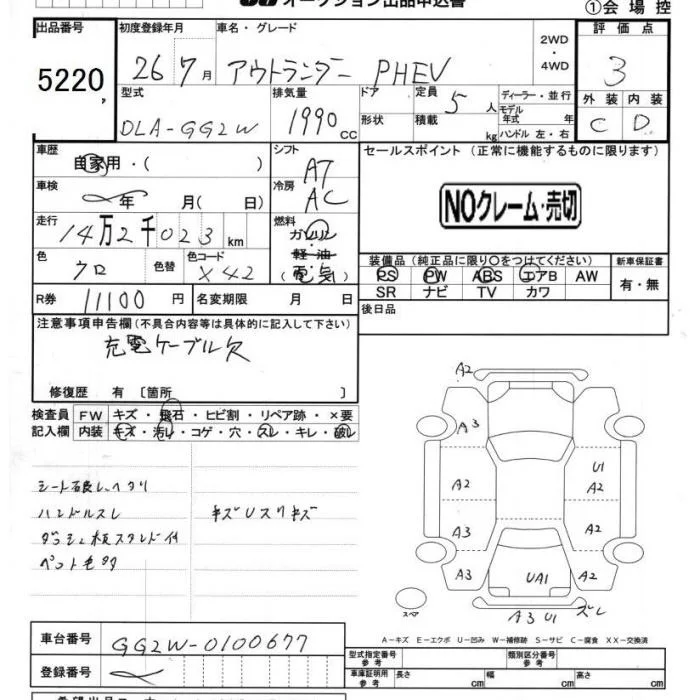 オークション出品申込書
①会場控
出品番号 初度登録年月 車名・グレード 2WD・4WD 評価点
5220 26 7月 アウトランダー PHEV 3
型式 排気量 ドア 定員 5人 ディーラー・並行 外装 内装
モデル
DLA-GG2W 1990cc 形状 積載 kg 年式 年 C D
ハンドル 左・右
車歴 自家用・( ) シフト AT セールスポイント(正常に機能するものに限ります)
車検 年 月( 日) 冷房 AC NOクレーム・売切
走行 14万2千023km 燃料 ガソリン・軽油・(電気)
色 クロ 色替 色コード X42
装備品(純正品に限り○をつけてください) 新車保証書
PS PW ABS エアB AW 有・無
SR ナビ TV カワ
R券 11100円 名変期限 月 日 後日品
注意事項申告欄(不具合内容等は具体的に記入して下さい)
充電ケーブル欠
修復歴 有 〔箇所 〕
検査員 FW キズ・飛石・ヒビ割・リペア跡・×要
記入欄 内装 キズ・汚レ・コゲ・穴・スレ・キレ・破レ
シート破レ、ヘタリ
ハンドルスレ キズUスリキズ
ダッシュ板スタンド付
ペット毛多
A2
A3
A2
A3
A3
U1
A2
A2
A2
UA1
A3 U1 ズレ
スペア
A-キズ E-エクボ U-凹み W-補修跡 S-サビ C-腐食 XX-交換済
車台番号 GG2W-0100677
型式指定番号 参考 類別区分番号 参考
登録番号
車庫証明用 参考 長さ cm 幅 cm 高さ cm